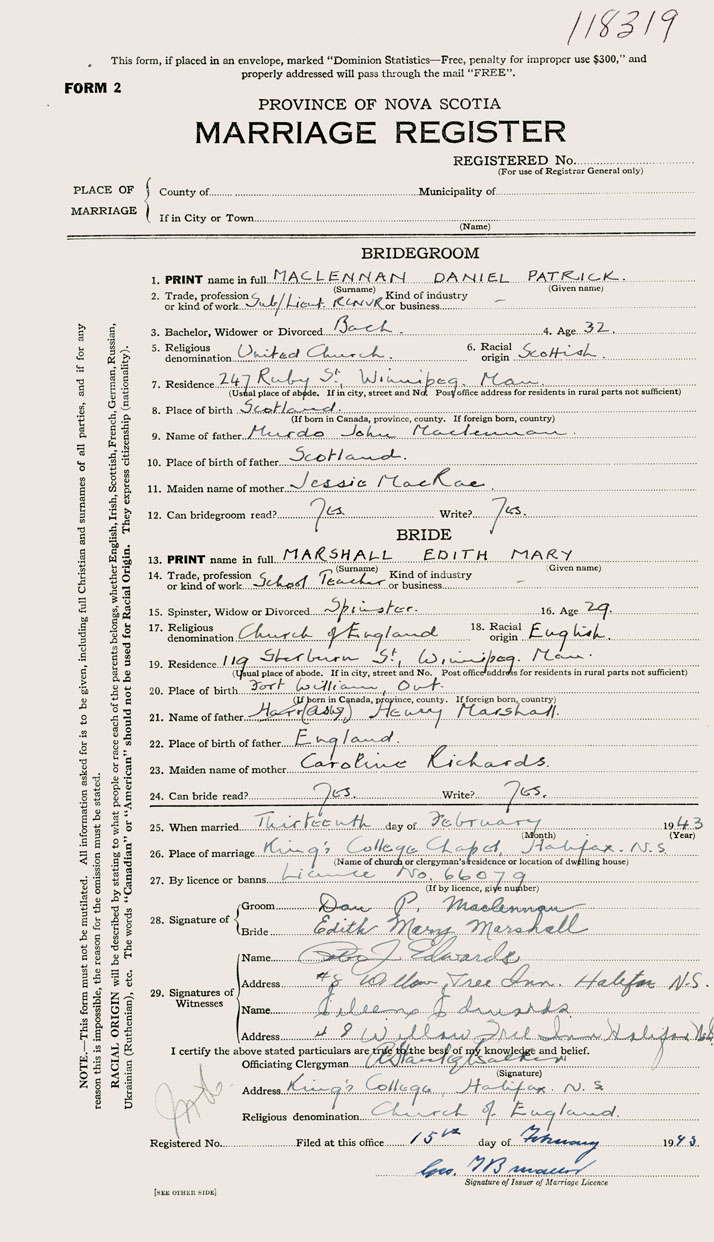 118319
This form, if placed in an envelope, marked "Dominion Statistics—Free, penalty for improper use $300," and
properly addressed will pass through the mail "FREE".
FORM 2
PROVINCE OF NOVA SCOTIA
MARRIAGE REGISTER
REGISTERED No.
(For use of Registrar General only)
PLACE OF MARRIAGE
County of Municipality of
If in City or Town
(Name)
BRIDEGROOM
1. PRINT name in full MACLENNAN DANIEL PATRICK.
(Surname) (Given name)
2. Trade, profession or kind of work Sub/Lieut. RCNVR Kind of industry or business –
3. Bachelor, Widower or Divorced Bach. 4. Age 32.
5. Religious denomination United Church. 6. Racial origin Scottish.
7. Residence 247 Ruby St, Winnipeg. Man.
(Usual place of abode. If in city, street and No. Post office address for residents in rural parts not sufficient)
8. Place of birth Scotland.
(If born in Canada, province, county. If foreign born, country)
9. Name of father Murdo John Maclennan.
10. Place of birth of father Scotland.
11. Maiden name of mother Jessie MacRae.
12. Can bridegroom read? Yes. Write? Yes.
BRIDE
13. PRINT name in full MARSHALL EDITH MARY
(Surname) (Given name)
14. Trade, profession or kind of work School Teacher Kind of industry or business –
15. Spinster, Widow or Divorced Spinster. 16. Age 29.
17. Religious denomination Church of England 18. Racial origin English.
19. Residence 119 Sherburn St, Winnipeg. Man.
(Usual place of abode. If in city, street and No. Post office address for residents in rural parts not sufficient)
20. Place of birth Fort William, Ont.
(If born in Canada, province, county. If foreign born, country)
21. Name of father Henry Marshall.
22. Place of birth of father England.
23. Maiden name of mother Caroline Richards.
24. Can bride read? Yes. Write? Yes.
25. When married Thirteenth day of February 1943
(Month) (Year)
26. Place of marriage King's College Chapel, Halifax. N.S.
(Name of church or clergyman's residence or location of dwelling house)
27. By licence or banns Licence No. 66079
(If by licence, give number)
28. Signature of Groom Dan P. Maclennan
Bride Edith Mary Marshall
29. Signatures of Witnesses Name J Edwards
Address #8 Willow Tree Inn. Halifax N.S.
Name Eileen Edwards
Address #8 Willow Tree Inn Halifax N.S.
I certify the above stated particulars are true to the best of my knowledge and belief.
Officiating Clergyman Walker
(Signature)
Address King's College, Halifax. N.S
Religious denomination Church of England.
Registered No. Filed at this office 15th day of February 1943.
Geo.
Signature of Issuer of Marriage Licence
[SEE OTHER SIDE]
NOTE.—This form must not be mutilated. All information asked for is to be given, including full Christian and surnames of all parties, and if for any
reason this is impossible, the reason for the omission must be stated.
RACIAL ORIGIN will be described by stating to what people or race each of the parents belongs, whether English, Irish, Scottish, French, German, Russian,
Ukrainian (Ruthenian), etc. The words "Canadian" or "American" should not be used for Racial Origin. They express citizenship (nationality).